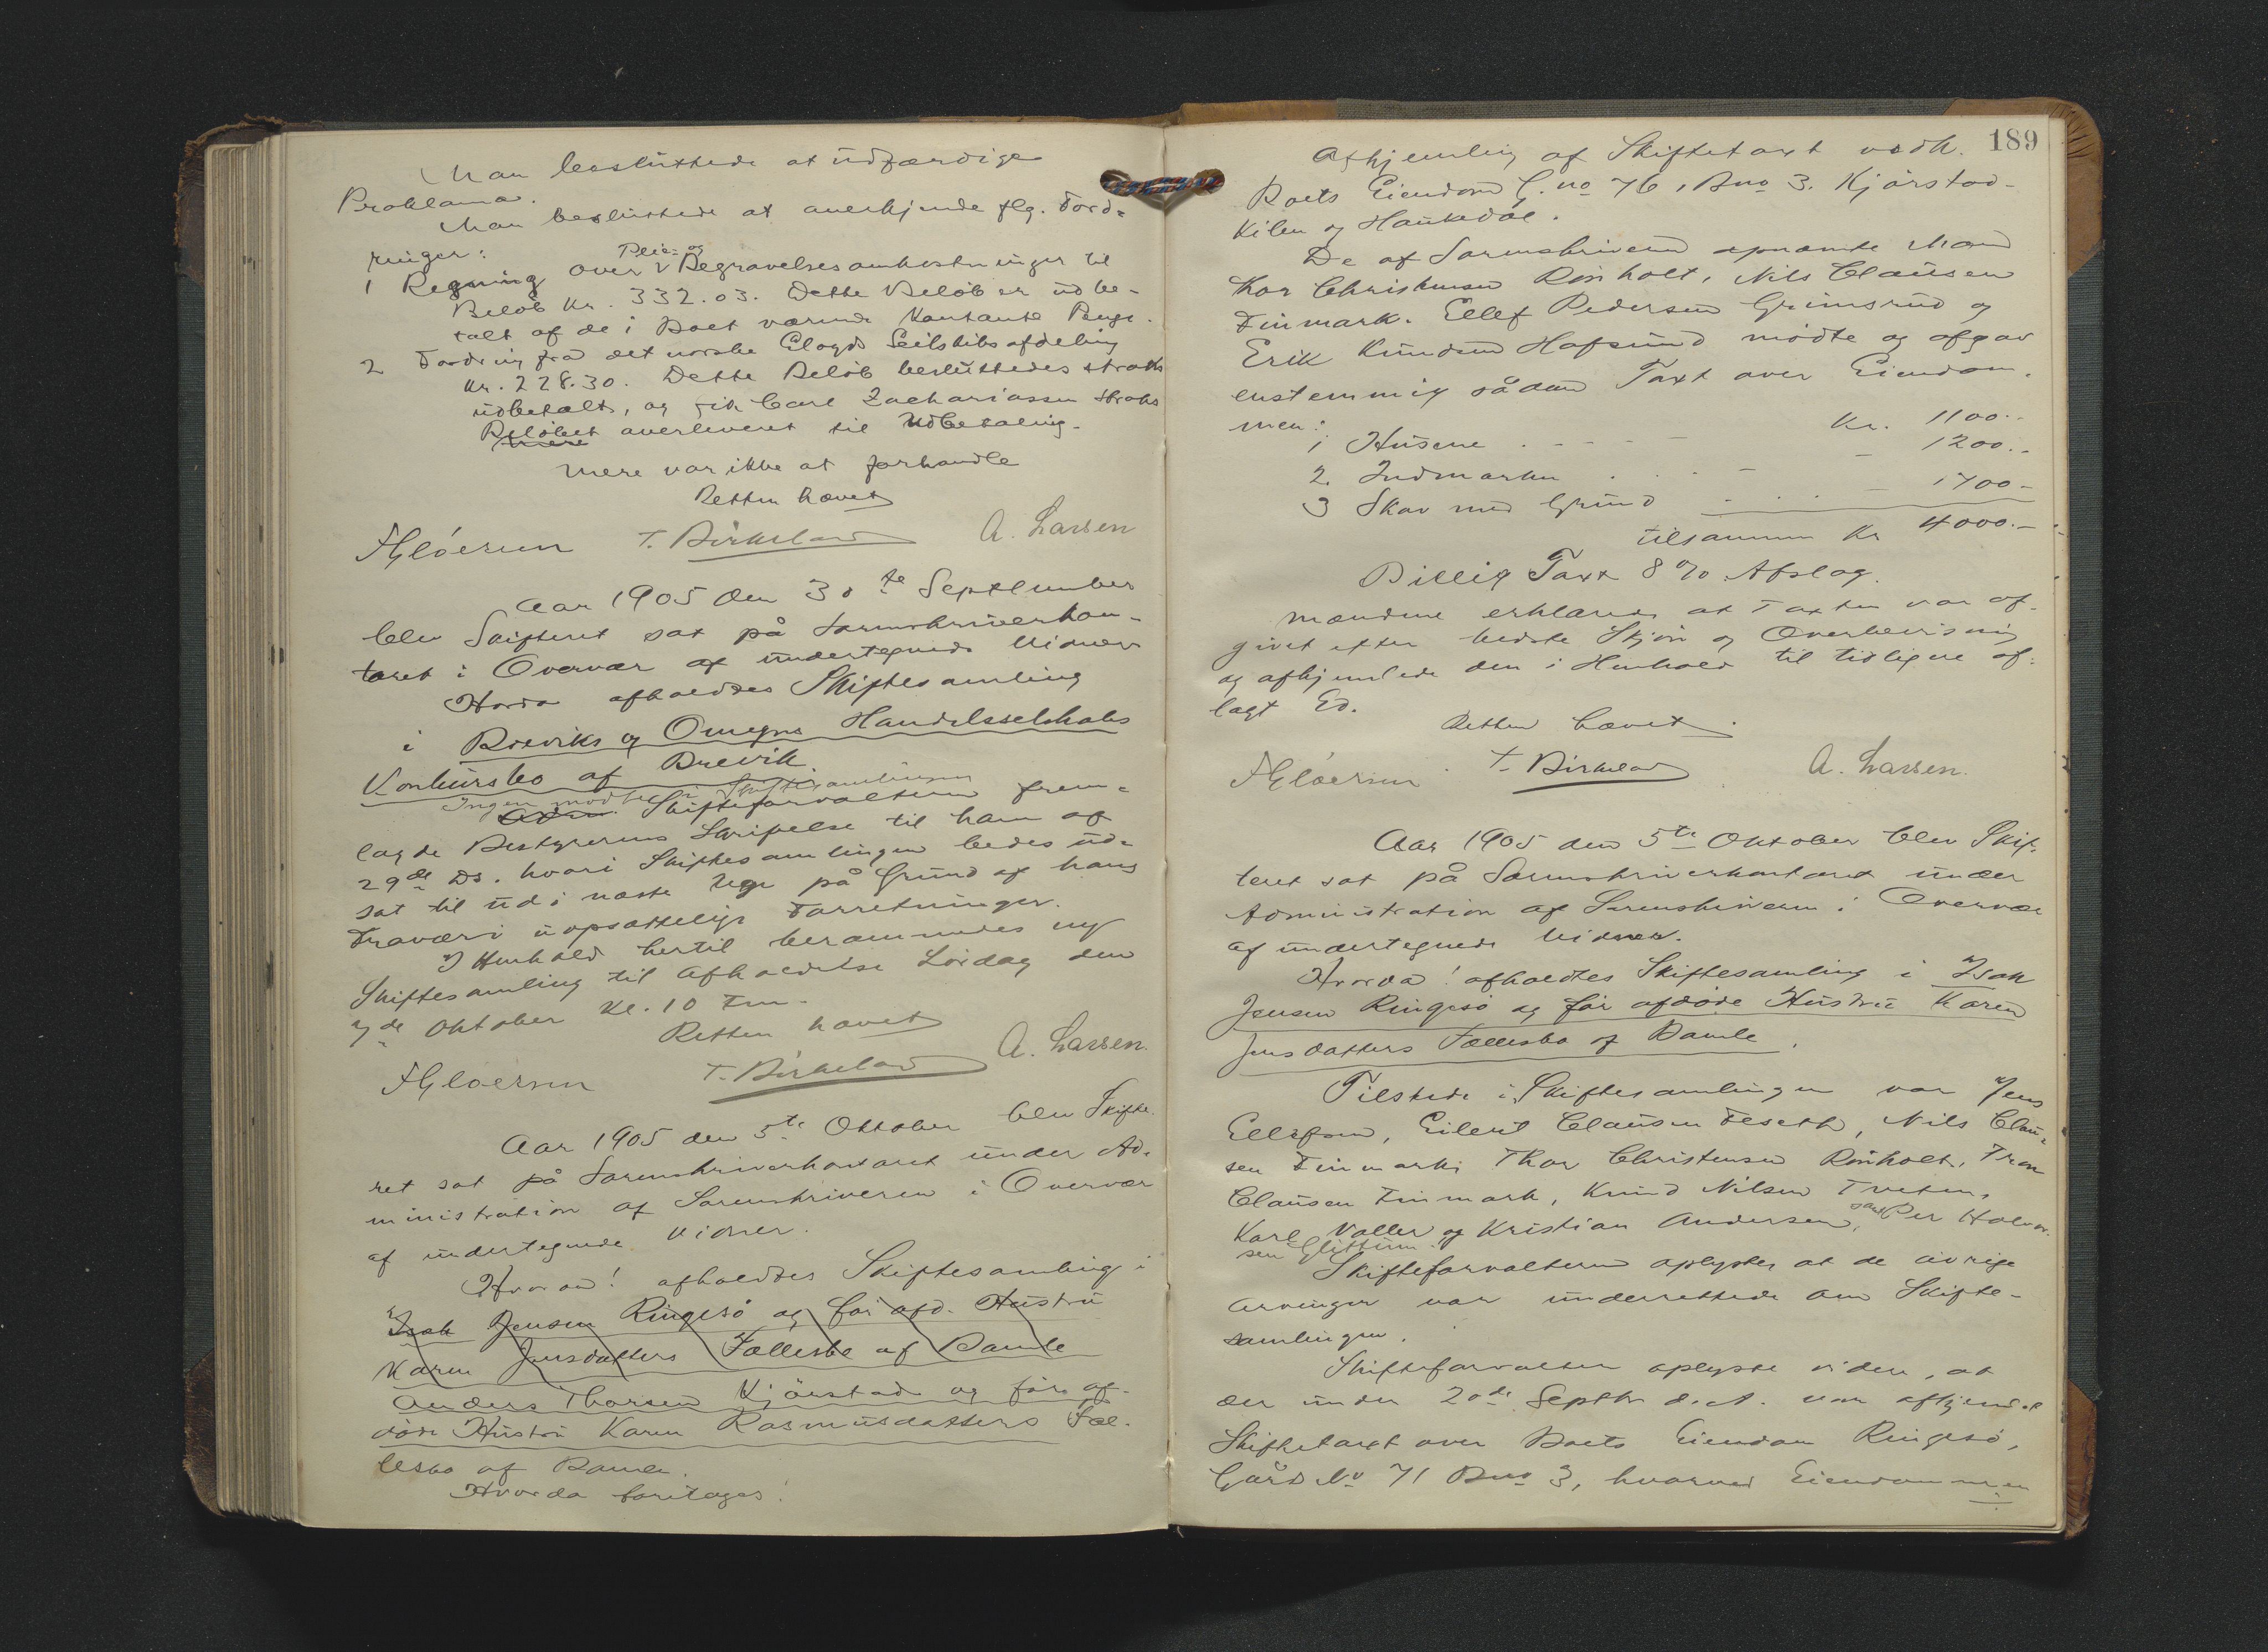 Man besluttede at udfærdige
Proklama.
Man besluttede at anerkjende flg. Ford-
ringer:
Pleie- og
1 Regning over Begravelsesomkostninger til
Beløb kr. 332.03. Dette Beløb er udbe-
talt af de i Boet værende kontante Penge.
2 Fordring fra det norske Lloyds Seilskibsafdeling
kr. 228.30. Dette Beløb besluttedes straks
udbetalt, og fik Carl Zachariassen straks
Beløbet overleveret til Udbetaling.
Mere
Mere var ikke at forhandle
Retten hævet
T. Birkeland A. Larsen
Aar 1905 den 30te September
blev Skifteret sat på Sorenskriverkon-
toret i Overvær af undertegnede Vidner
Hvorda afholdtes Skiftesamling
i Breviks og Omegns Handelsselskabs
Konkursbo af Brevik.
Ingen mødte i Skiftesamlingen
Skifteforvalteren frem-
lagde Bestyrerens Skrivelse til ham af
29de ds. hvori Skiftesamlingen bedes ud-
sat til ud i næste Uge på Grund af hans
Fravær i uopsættelige Forretninger.
I Henhold hertil berammedes ny
Skiftesamling til Afholdelse Lørdag den
7de Oktober Kl. 10 Fm.
Retten hævet
T. Birkeland A. Larsen.
Aar 1905 den 5te Oktober blev Skifte-
ret sat på Sorenskriverkontoret under Ad-
ministration af Sorenskriveren i Overvær
af undertegnede Vidner.
Hvorda! afholdtes Skiftesamling i
Isak Jensen Ringsø og før afd. Hustru
Karen Jensdatters Fællesbo af Bamle
Anders Thorsen Kjørstad og før af-
døde Hustru Karen Rasmusdatters Fæl-
lesbo af Bamle.
Hvorda foretoges!
189
Afhjemling af Skiftetaxt vedk.
Boets Eiendom G. no 76, Bno 3. Kjørstad-
kilen og Haukedal.
De af Sorenskriveren opnævnte Mænd
Thor Christensen Rønholt, Nils Clausen
Finmark. Ellef Pedersen Grimsrud og
Erik Knudsen Hafsund mødte og afgav
enstemmig sådan Taxt over Eiendom-
men:
1 Husene . - - - - Kr. 1100.-
2. Indmarken . . - - 1200.-
3 Skov med Grund - . . - 1700-
tilsammen Kr 4000.-
Billig Taxt 8% Afslag.
Mændene erklærede at Taxten var af-
givet efter bedste Skjøn og Overbevisning
og afhjemlede den i Henhold til tidligere af-
lagt Ed.
Retten hævet.
T. Birkeland A. Larsen.
Aar 1905 den 5te Oktober blev Skif-
teret sat på Sorenskriverkontoret under
Administration af Sorenskriveren i Overvær
af undertegnede Vidner.
Hvorda! afholdtes Skiftesamling i Isak
Jensen Ringsø og før afdøde Hustru Karen
Jensdatters Fællesbo af Bamle.
Tilstede i Skiftesamlingen var Jens
Ellefsen, Eilert Clausen Feseth, Nils Clau-
sen Finmark, Thor Christensen Rønholt,
Clausen Finmark, Knud Nilsen Tveten,
Karl Valler og Kristian Andersen, samt Per Halvor-
sen Glittum.
Skifteforvalteren oplyste at de øvrige
Arvinger var underrettede om Skifte-
samlingen.
Skifteforvalteren oplyste videre, at
der under 20de Septbr d. A. var afhjemlet
Skiftetaxt over Boets Eiendom Ringsø,
Gårds No 71 Bno 3, hvorved Eiendommen